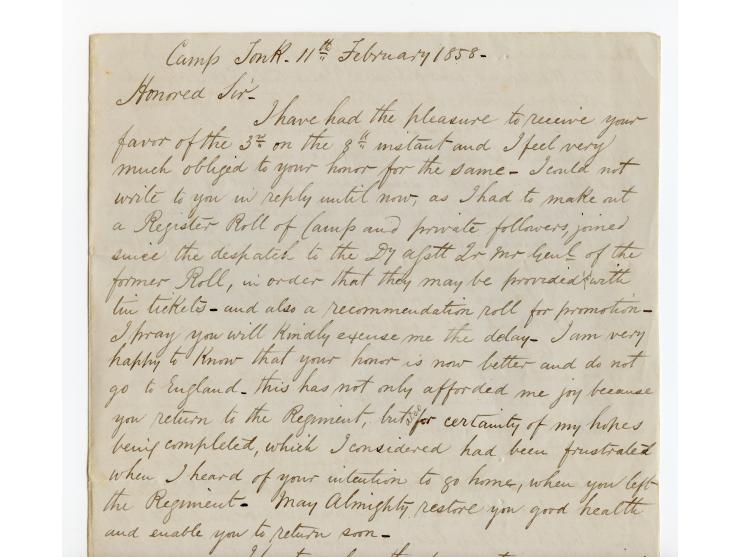 Camp Tonk. 11th February 1858-
Honored Sir-
I have had the pleasure to receive your
favor of the 3rd on the 8th instant and I feel very
much obliged to your honor for the same - I could not
write to you in reply until now, as I had to make out
a Register Roll of Camp and private followers, joined
since the despatch to the Dy asstt Qr Mr Genl of the
former Roll, in order that they may be provided with
tin tickets - and also a recommendation roll for promotion -
I pray you will kindly excuse me the delay - I am very
happy to know that your honor is now better and do not
go to England - this has not only afforded me joy because
you return to the Regiment, but also for certainty of my hopes
being completed, which I considered had been frustrated
when I heard of your intention to go home, when you left
the Regiment - May Almighty restore you good health
and enable you to return soon -